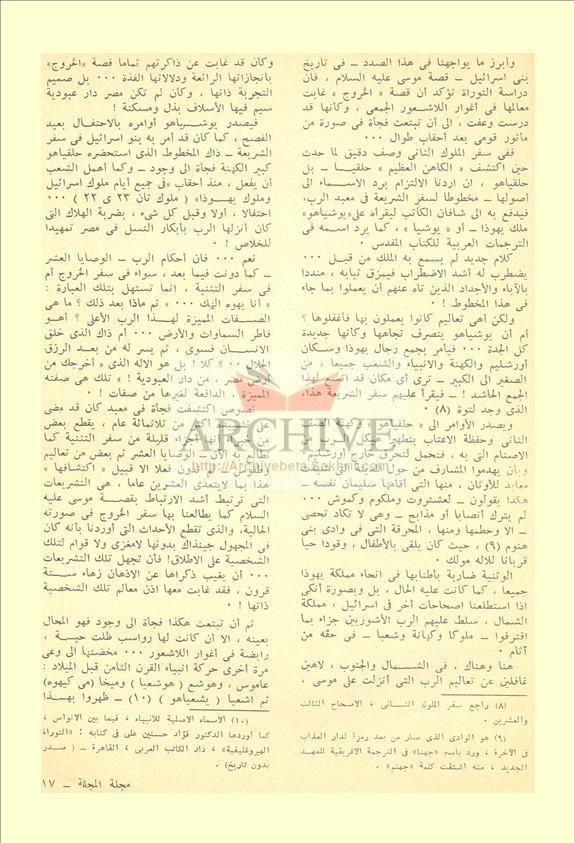 وأبرز ما يواجهنا فى هذا الصدد ــ فى تاريخ
بنى اسرائيل ــ قصة موسى عليه السلام ، فان
دراسة التوراة تؤكد أن قصة « الخروج » غابت
معالمها فى أغوار اللاشعور الجمعى ، وكأنها قد
درست وعفت ، الى أن تبتعث فجأة فى صورة من
مأثور قومى بعد أحقاب طوال ٠٠٠
ففى سفر الملوك الثانى وصف دقيق لما حدث
حين اكتشف « الكاهن العظيم » حلقيا ــ بل
حلقياهو ، ان اردنا الالتزام برد الاسماء الى
أصولها ــ مخطوطا لسفر الشريعة فى معبد الرب،
فيدفع به الى شافان الكاتب ليقرأه على«يوشياهو»
ملك يهوذا ــ أو « يوشيا » ، كما يرد اسمه فى
الترجمات العربية للكتاب المقدس .
كلام جديد لم يسمع به الملك من قبل ٠٠٠
يضطرب له أشد الاضطراب فيمزق ثيابه ، منددا
بالآباء والأجداد الذين تاه عنهم أن يعملوا بما جاء
فى هذا المخطوط ! .
ولكن أهى تعاليم كانوا يعملون بها فأغفلوها ؟
أم أن يوشياهو يتصرف تجاهها وكأنها جديدة
كل الجدة ٠٠٠ فيأمر بجمع رجال يهوذا وسكان
أورشليم والكهنة والانبياء والشعب جميعا ، من
الصغير الى الكبير ــ ترى أى مكان قد اتسع لهذا
الجمع الحاشد ! ــ فيقرأ عليهم سفر الشريعة هذا،
الذى وجد لتوه (٨) .
ويصدر الأوامر الى « حلقياهو » وكهنة الصف
الثانى وحفظة الاعتاب بتطهير هيكل الرب من
الاصنام التى به ، فتحمل لتحرق خارج أورشليم،
وبأن يهدموا المشارف من حول مدينة الرب ،
معابد للأوثان ، منها التى أقامها سليمان نفسه ــ
هكذا يقولون ــ لعشتروت وملكوم وكموش ٠٠٠
لم يترك أنصابا أو مذابح ــ وهى لا تكاد تحصى
ــ الا وحطمها ومنها ، المحرقة التى فى وادى بنى
هنوم (٩) ، حيث كان يلقى بالأطفال ، وقودا حيا
قربانا للاله مولك .
الوثنية ضاربة بأطنابها فى انحاء مملكة يهوذا
جميعا ، كما كانت عليه الحال ، بل وبصورة أنكى
اذا استطلعنا اصحاحات أخر فى اسرائيل ، مملكة
الشمال ، سلط عليهم الرب الأشوريين جزاء بما
اقترفوا ــ ملوكا وكهانة وشعبا ــ فى حقه من
آثام .
هنا وهناك ، فى الشمال والجنوب ، لاهين
غافلين عن تعاليم الرب التى أنزلت على موسى ،
(٨) راجع سفر الملوك الثانى ، الاصحاح الثالث
والعشرين .
(٩) هو الوادى الذى صار من بعد رمزا لدار العذاب
فى الآخرة ، ورد باسم «جهنا» فى الترجمة الاغريقية للعهد
الجديد ، منه اشتقت كلمة «جهنم» .
وكأن قد غابت عن ذاكرتهم تماما قصة «الخروج»
بانجازاتها الرائعة ودلالاتها الفذة ٠٠٠ بل صميم
التجربة ذاتها ، وكأن لم تكن مصر دار عبودية
سيم فيها الأسلاف بذل ومسكنة !
فيصدر يوشياهو أوامره بالاحتفال بعيد
الفصح ، كما كان قد أمر به بنو اسرائيل فى سفر
الشريعة ــ ذاك المخطوط الذى استحضره حلقياهو
كبير الكهنة فجأة الى وجود ــ وكما أهمل الشعب
أن يفعل ، منذ أحقاب «فى جميع أيام ملوك اسرائيل
وملوك يهوذا» ( ملوك ثان ٢٣ ى ٢٢ ) ٠٠٠
احتفالا ، أولا وقبل كل شىء ، بضربة الهلاك التى
كان أنزلها الرب بأبكار النسل فى مصر تمهيدا
للخلاص ! .
نعم ٠٠٠ فان أحكام الرب ــ الوصايا العشر
ــ كما دونت فيما بعد ، سواء فى سفر الخروج أم
فى سفر التثنية ، انما تستهل بتلك العبارة :
« أنا يهوه الهك ٠٠٠ » ثم ماذا بعد ذلك ؟ ما هى
الصفات المميزة لهذا الرب الأعلى ؟ أهو
فاطر السماوات والأرض ٠٠٠ أم ذاك الذى خلق
الانسان فسوى ، ثم يسر له من بعد الرزق
الحلال ٠٠ ؟ كلا ! بل هو الاله الذى « أخرجك من
أرض مصر ، من دار العبودية ! » تلك هى صفته
المميزة ، الدافعة لغيرها من صفات ! .
نصوص اكتشفت فجأة فى معبد كان قد مضى
على تشييده أكثر من ثلاثمائة عام ، يقطع بعض
من علمائهم أنها أجزاء قليلة من سفر التثنية كما
نطالع به الآن ــ الوصايا العشر ثم بعض من تعاليم
هذا بما لايتعدى العشرين عاما ، هى التشريعات
التى ترتبط أشد الارتباط بقصة موسى عليه
السلام كما يطالعنا بها سفر الخروج فى صورته
الحالية، والذى تقطع الأحداث التى أوردنا بأنه كان
فى المجهول حينذاك بدونها لامغزى ولا قوام لتلك
الشخصية على الاطلاق! فأن تجهل تلك التشريعات
٠٠٠ أن يغيب ذكراها عن الاذهان زهاء ستة
قرون ، فقد غابت معها اذن معالم تلك الشخصية
ذاتها ! .
ثم أن تبتعث هكذا فجأة الى وجود فهو المحال
بعينه ، الا أن كانت لها رواسب ظلت حيسة ،
رابضة فى أغوار اللاشعور ٠٠٠ مخضتها الى وعى
مرة أخرى حركة أنبياء القرن الثامن قبل الميلاد :
عاموس ، وهوشع ( هوشعيا ) وميخا (مى كيهوه)
ثم اشعيا ( يشعياهو ) (١٠) ــ ظهروا بهذا
(١٠) الاسماء الاصلية للأنبياء ، فيما بين الاقواس ،
كما أوردها الدكتور فؤاد حسنين على فى كتابه : «التوراة
الهيروغليفية» ، دار الكاتب العربى ، القاهرة ــ ( صدر
بدون تاريخ) .
مجلة المجلة ــ ١٧
ARCHIVE
http://Archivebeta.Sakhrit.com